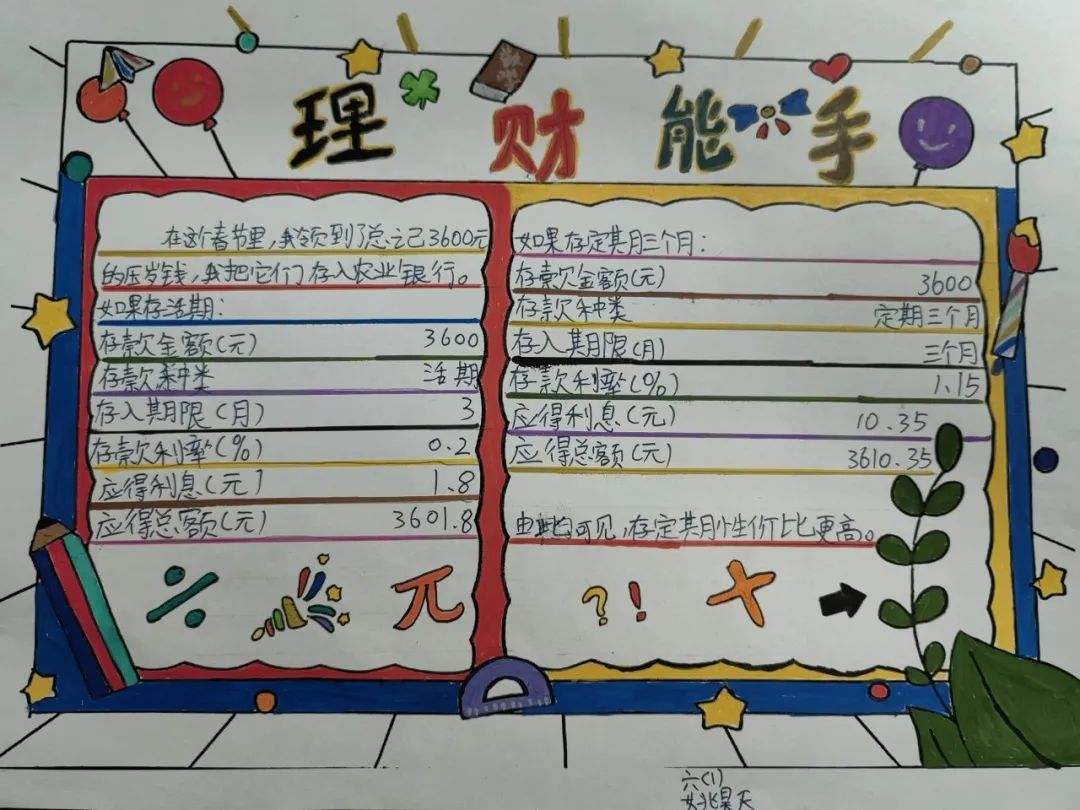 理财能手
数学
在这个春节里，我领到了总之已3600元
的压岁钱，我把它们存入农业银行。
如果存活期：
存款金额(元) 3600
存款种类 活期
存入期限(月) 3
存款利率(%) 0.2
应得利息(元] 1.8
应得总额(元) 3601.8
如果存定期三个月：
存款金额(元) 3600
存款种类 定期三个月
存入期限(月) 三个月
存款利率(%) 1.15
应得利息(元) 10.35
应得总额(元) 3610.35
由此可见，存定期性价比更高。
÷
π
?!
+
六(1)
姚昊天